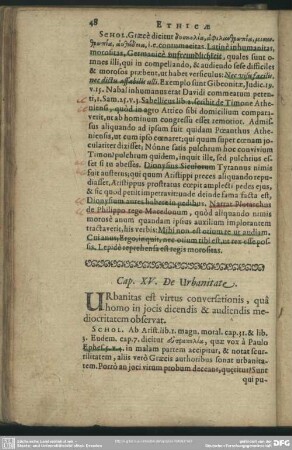 48 ETHICÆ
SCHOL. Græcè dicitur
i.e. contumacitas. Latinè inhumanitas,
morositas, Germanicè unfreundlichkeit, quales sunt o-
mnes illi, qui in compellando, & audiendo sese difficiles
& morosos præbent, ut habet versiculus: Nec visu facilis,
nec dictu affabilis ulli. Exemplo sunt Gibeonitæ, Judic. 19.
v. 15. Nabal inhumanus erat Davidi commeatum peten-
ti, 1. Sam. 25. v. 3. Sabellicus lib. 2. scribit de Timone Athe-
niensi, quod in agro Attico sibi domicilium compara-
verit, ut ab hominum congressu esset remotior. Admis-
sus aliquando ad ipsum fuit quidam Athe-
niensis, ut cum ipso cœnaret, qui quum super cœnam jo-
culariter dixisset: Nónne satis pulchrum hoc convivium
Timon? pulchrum quidem, inquit ille, sed pulchrius es-
set si tu abesses. Dionysius Siculorum Tyrannus nimis
fuit austerus, quum Aristippi preces aliquando repu-
diasset, Aristippus prostratus cœpit amplecti pedes ejus,
& sic quod petiit impetravit: unde deinde fama facta est,
Dionysium aures habere in pedibus. Narrat Plutarchus
de Philippo rege Macedonum, quod aliquando nimis
morosè anum quandam ipsius auxilium implorantem
tractaverit, his verbis: Mihi non est otium te ut audiam.
Cui anus, Ergo, inquit, nec otium tibi est, ut rex esse pos-
sis. Lepidè reprehensa est regis morositas.
Cap. XV. De Urbanitate.
URbanitas est virtus conversationis, quâ
homo in jocis dicendis & audiendis me-
diocritatem observat.
SCHOL. Ab Arist. lib. 1. magn. moral. cap. 31. & lib.
3. Eudem. cap. 7. dicitur quæ vox à Paulo
Ephes. 5. v. 4. in malam partem accipitur, & notat scur-
rilitatem, aliis verò Græcis authoribus sonat urbanita-
tem. Porrò an joci virum probum deceant, quæritur? Sunt
qui pu-